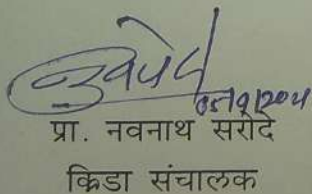 प्रा. नवनाथ सरोदे
क्रिडा संचालक